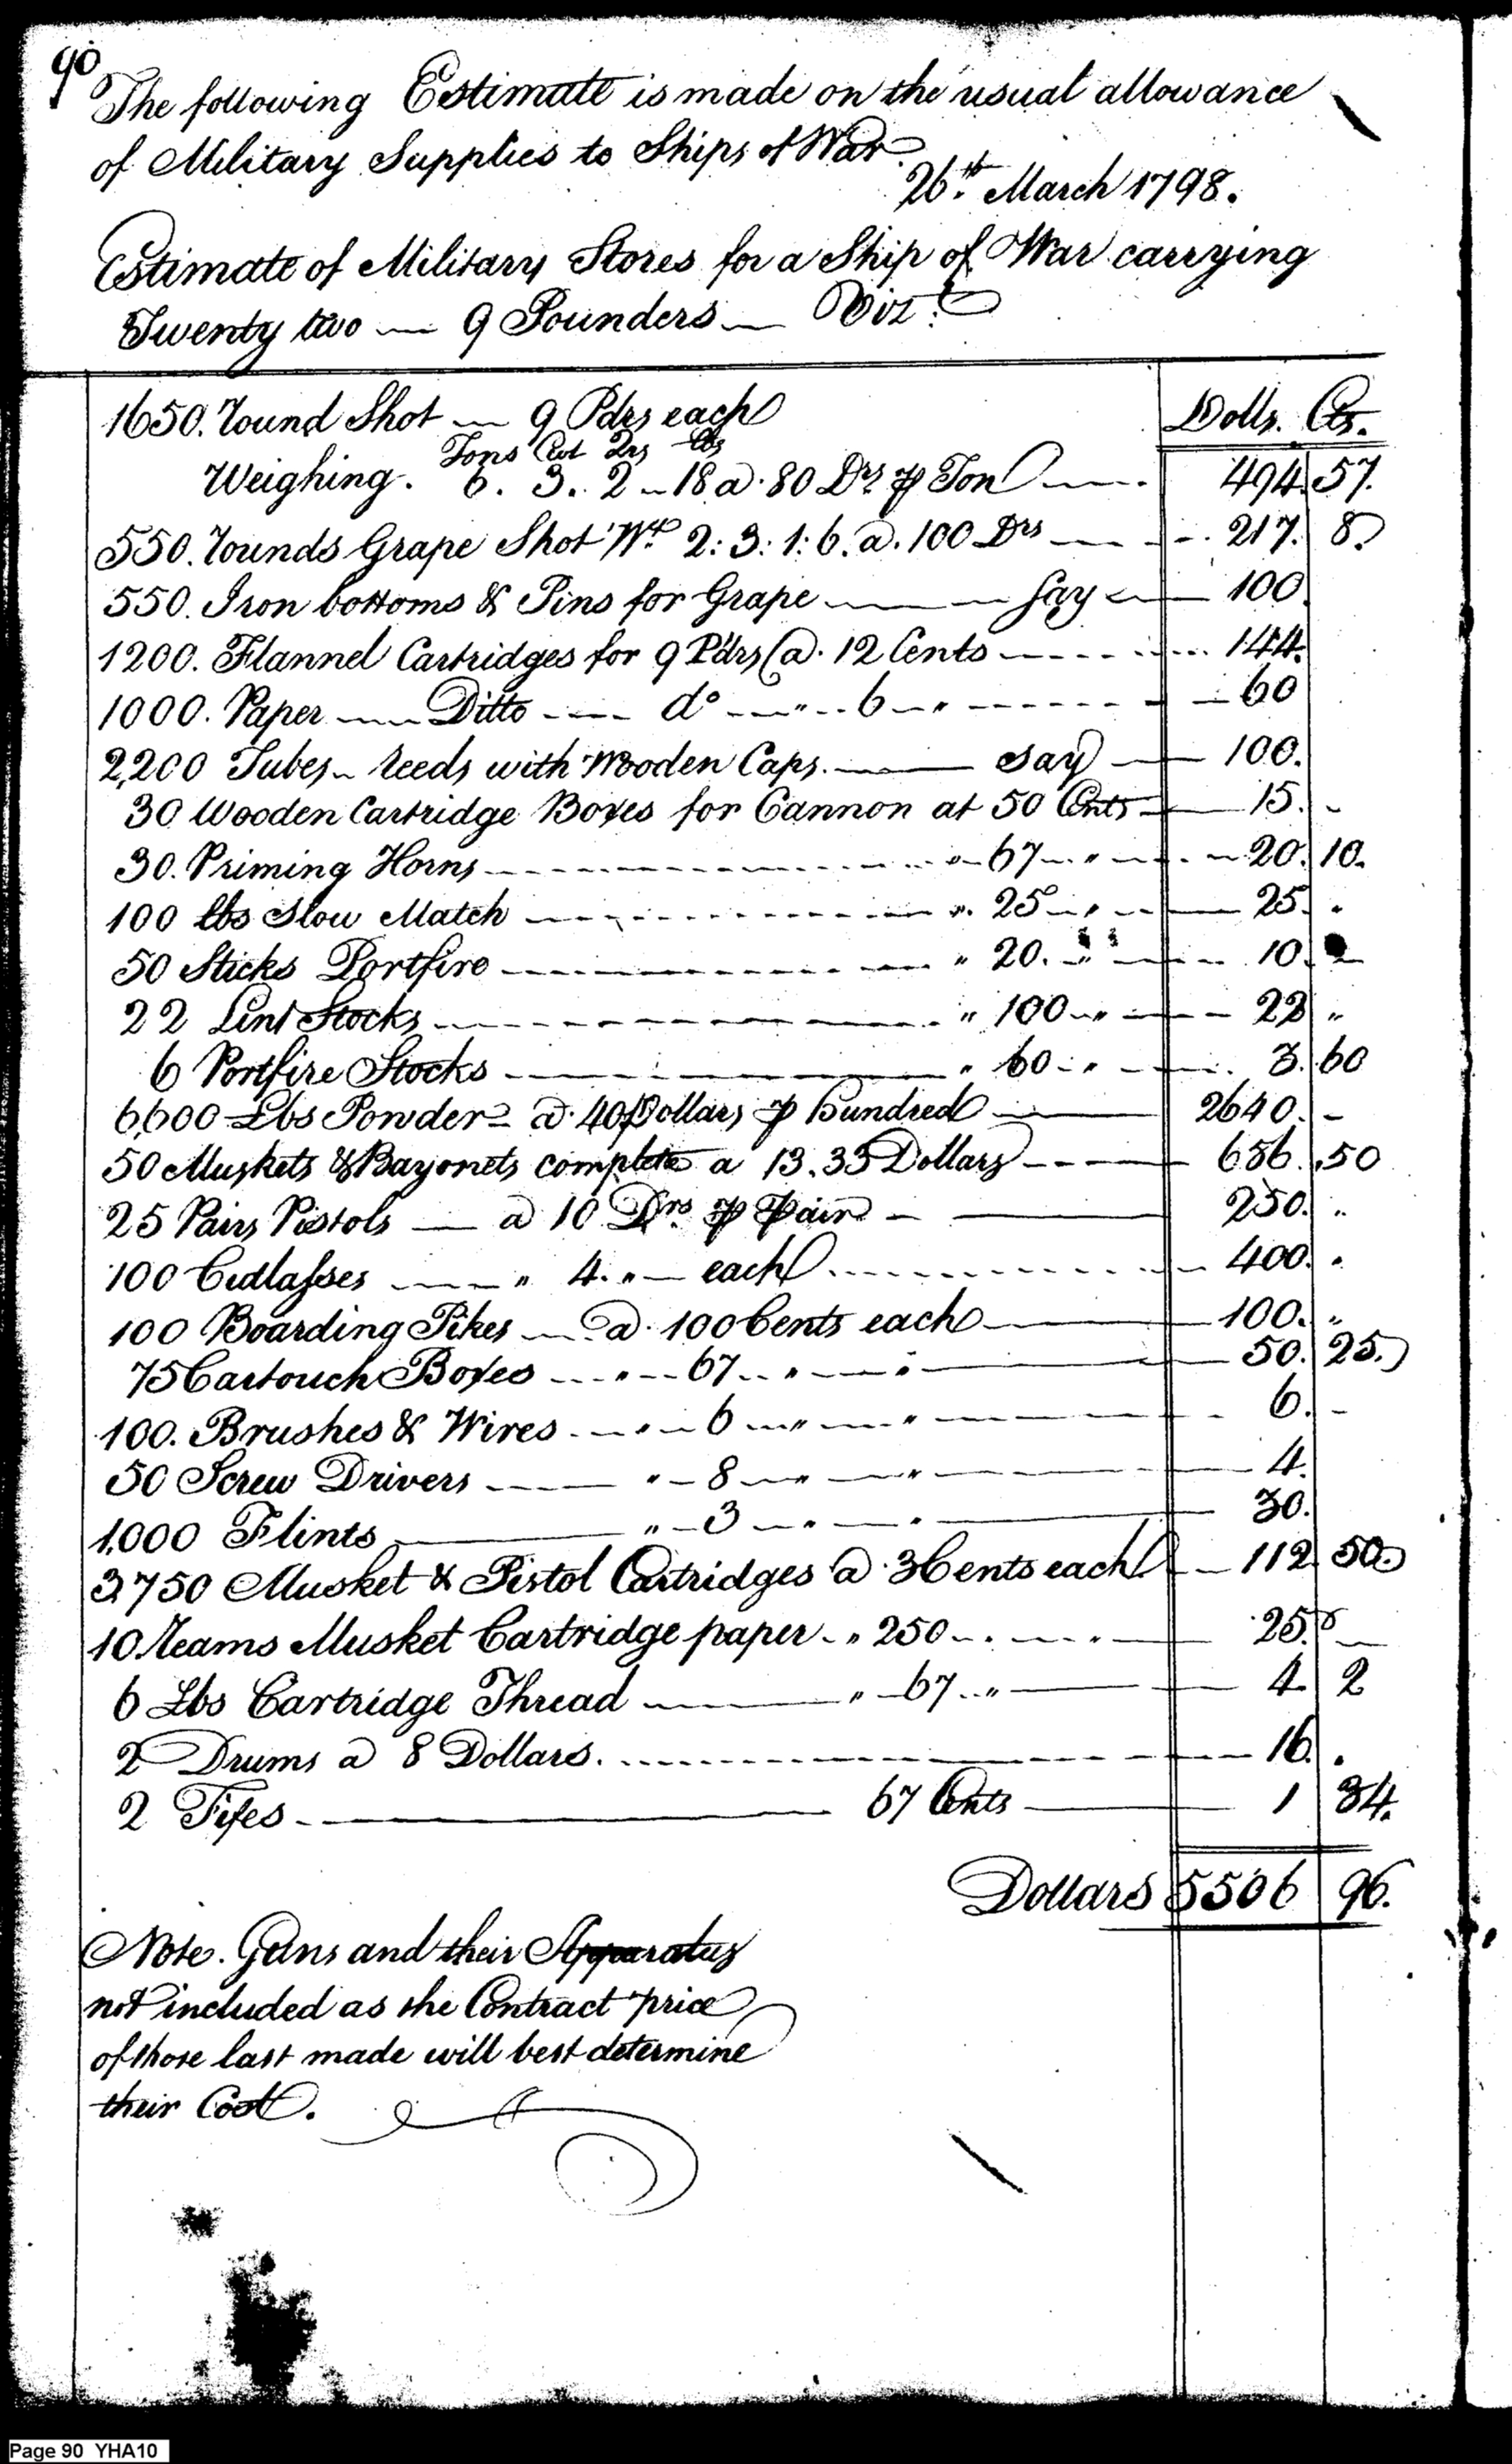 90
The following Estimate is made on the usual allowance
of Military Supplies to Ships of War.
26th. March 1798.
Estimate of Military Stores for a Ship of War carrying
Twenty two — 9 Pounders — Vizt.
Dolls. Cts.
1650. round Shot — 9 Pdrs each
Tons Cwt Qrs lbs
Weighing. 6. 3. 2 - 18 a. 80 Drs. ⅌ Ton — 494. 57.
550. rounds Grape Shot Wt. 2: 3: 1: 6. a. 100 Drs — 217. 8.
550. Iron bottoms & Pins for Grape — say — 100.
1200. Flannel Cartridges for 9 Pdrs @. 12 Cents ---- 144.
1000. Paper — Ditto — do — " -- 6 - " ---- 60
2,200 Tubes - reeds with Wooden Caps. — say — 100.
30 Wooden Cartridge Boxes for Cannon at 50 Cents — 15. -
30. Priming Horns ---- " - 67 - " - 20. 10.
100 lbs Slow Match ---- ". 25 - " -- 25. .
50 Sticks Portfire ---- " 20. - " - 10. -
22 Lint Stocks ---- " 100 - " - 22 "
6 Portfire Stocks ---- " 60 - " - 3. 60
6,600 Lbs Powder - a. 40 Dollars ⅌ hundred — 2640. -
50 Muskets & Bayonets complete a 13.33 Dollars --- 666. .50
25 Pairs Pistols — a 10 Drs. ⅌ Pair - — 250. ..
100 Cutlasses — " 4. " — each ---- 400. .
100 Boarding Pikes — a. 100 Cents each — 100. "
75 Cartouch Boxes --- " -- 67 -- " — " — 50. 25.
100. Brushes & Wires - " - 6 - " — " — 6. -
50 Screw Drivers — " - 8 - " — " — 4.
1,000 Flints — " - 3 - " - " — 30.
3750 Musket & Pistol Cartridges a. 3 Cents each — 112 50.
10 reams Musket Cartridge paper - " 250 - " — " — 25. —
6 Lbs Cartridge Thread — " - 67 .. " — 4. 2
2 Drums a 8 Dollars. ---- 16. .
2 Fifes - — 67 Cents — 1 34.
Dollars 5506 96.
Note. Guns and their Apparatus
not included as the Contract price
of those last made will best determine
their Cost.
Page 90 YHA10